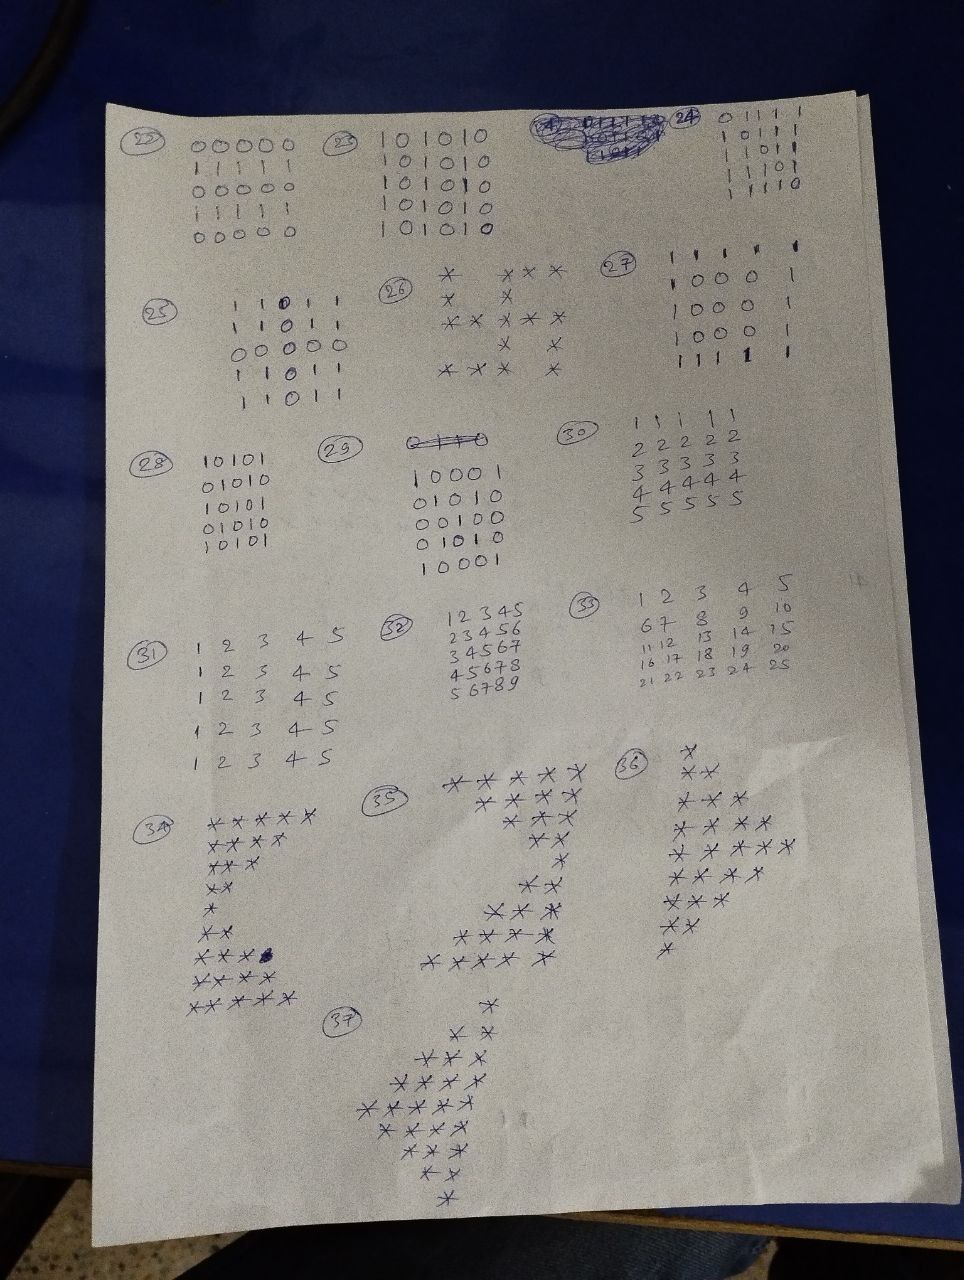 22
0 0 0 0 0
1 1 1 1 1
0 0 0 0 0
1 1 1 1 1
0 0 0 0 0
23
1 0 1 0 1 0
1 0 1 0 1 0
1 0 1 0 1 0
1 0 1 0 1 0
1 0 1 0 1 0
24
0 1 1 1 1
1 0 1 1 1
1 1 0 1 1
1 1 1 0 1
1 1 1 1 0
25
1 1 0 1 1
1 1 0 1 1
0 0 0 0 0
1 1 0 1 1
1 1 0 1 1
26
*   * * *
*   *
* * * * *
    *   *
* * *   *
27
1 1 1 1 1
1 0 0 0 1
1 0 0 0 1
1 0 0 0 1
1 1 1 1 1
28
1 0 1 0 1
0 1 0 1 0
1 0 1 0 1
0 1 0 1 0
1 0 1 0 1
29
1 0 0 0 1
0 1 0 1 0
0 0 1 0 0
0 1 0 1 0
1 0 0 0 1
30
1 1 1 1 1
2 2 2 2 2
3 3 3 3 3
4 4 4 4 4
5 5 5 5 5
31
1 2 3 4 5
1 2 3 4 5
1 2 3 4 5
1 2 3 4 5
1 2 3 4 5
32
1 2 3 4 5
2 3 4 5 6
3 4 5 6 7
4 5 6 7 8
5 6 7 8 9
33
1 2 3 4 5
6 7 8 9 10
11 12 13 14 15
16 17 18 19 20
21 22 23 24 25
34
* * * * *
* * * *
* * *
* *
*
* *
* * *
* * * *
* * * * *
35
* * * * *
  * * * *
    * * *
      * *
        *
      * *
    * * *
  * * * *
* * * * *
36
*
* *
* * *
* * * *
* * * * *
* * * *
* * *
* *
*
37
        *
      * *
    * * *
  * * * *
* * * * *
  * * * *
    * * *
      * *
        *